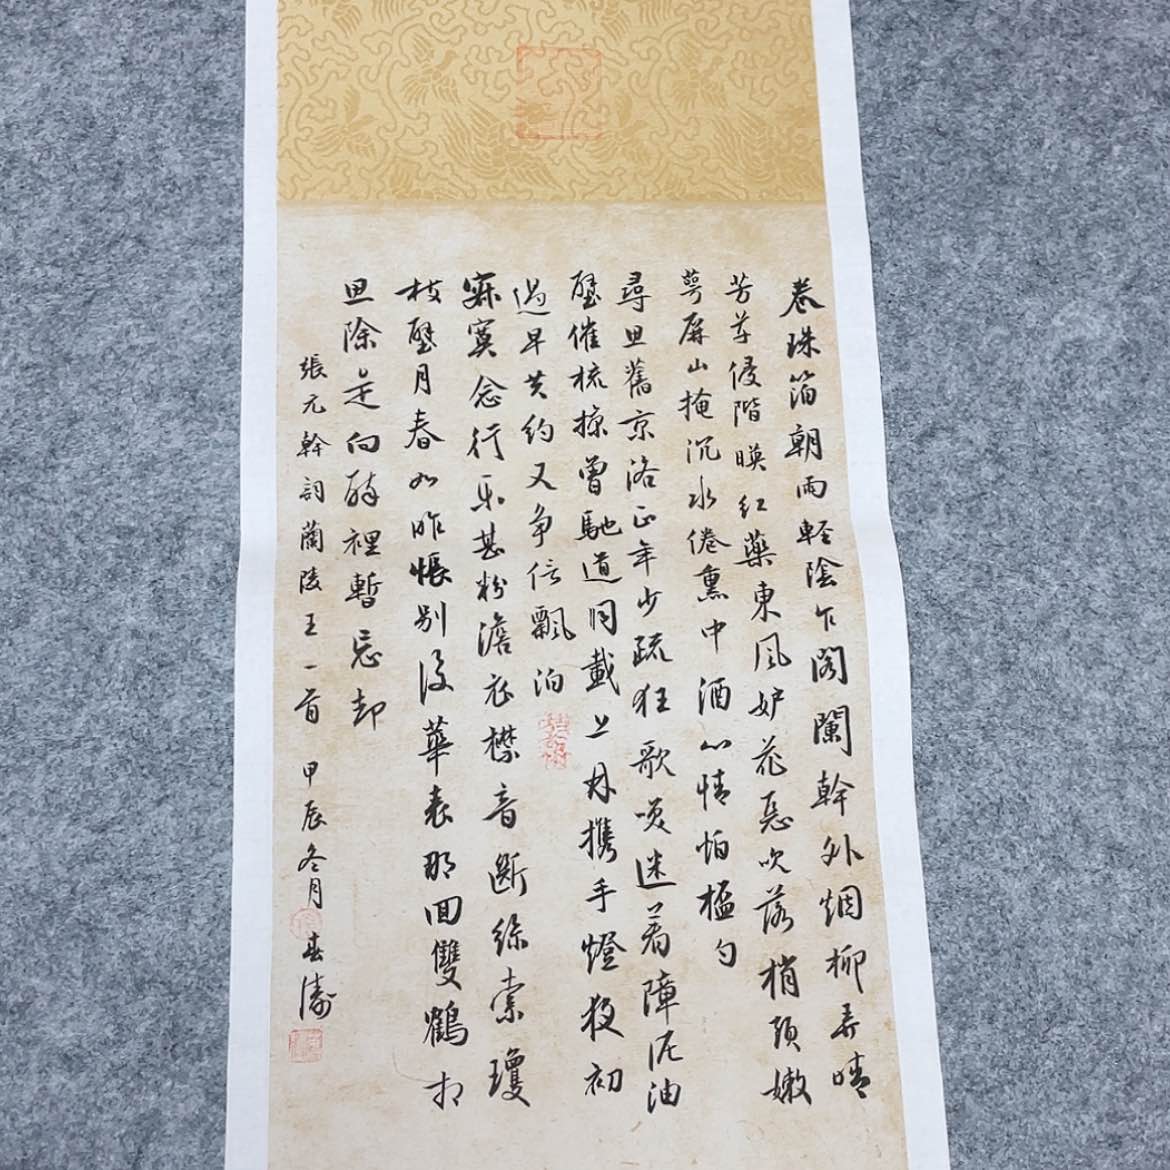 卷珠箔朝雨輕陰乍閣闌幹外烟柳弄晴
芳草侵階暎紅藥東風妒花惡吹落梢頭嫩
萼屏山掩沉水倦熏中酒心情怕勺
尋思舊京洛正年少疏狂歌笑迷着障泥油
壁催梳掠曾馳道同載上林携手燈夜初
過早共約又爭信飄泊
寂寞念行樂甚粉澹衣襟音斷絃索瓊
枝壁月春如昨悵别後華表那回雙鶴相
思除是向醉裡暫忘却
張元幹詞蘭陵王一首 甲辰冬月 春濤